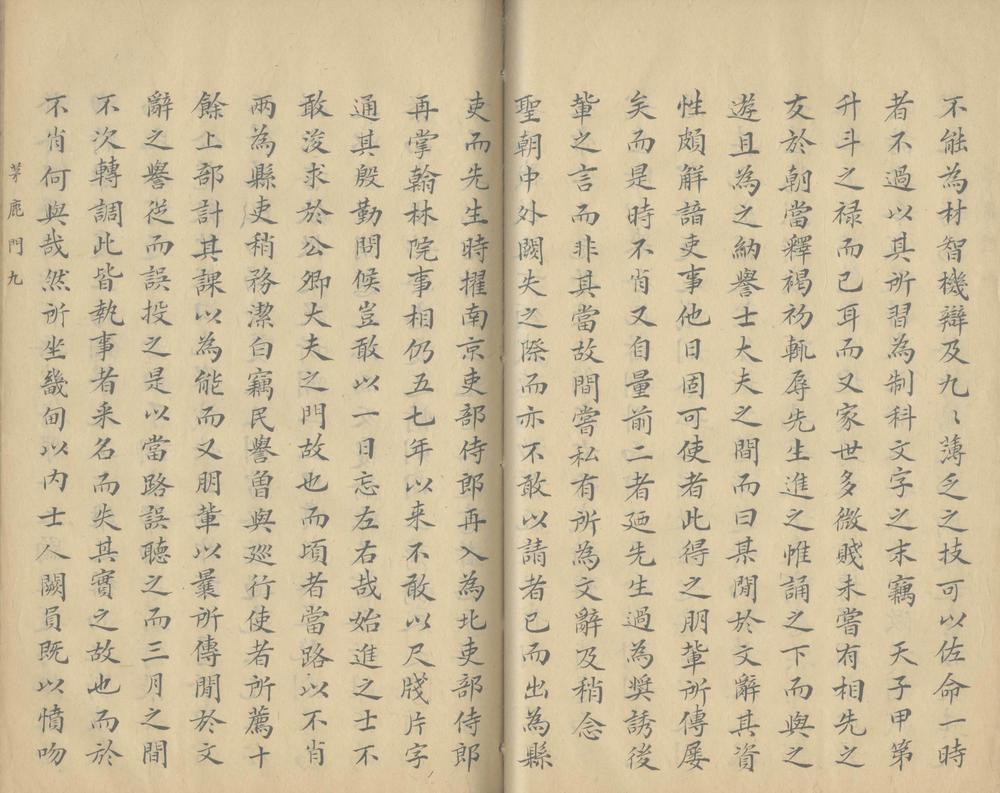 不能為材智機辯及九〻薄乏之技可以佐命一時
者不過以其所習為制科文字之末竊　天子甲第
升斗之禄而已耳而又家世多微賤未嘗有相先之
友於朝當釋褐初輒辱先生進之帷誦之下而與之
遊且為之納譽士大夫之間而曰某閒於文辭其資
性頗解諳吏事他日固可使者此得之朋輩所傳屡
矣而是時不肖又自量前二者廼先生過為奬誘後
輩之言而非其當故間嘗私有所為文辭及稍念
聖朝中外闕失之際而亦不敢以請者已而出為縣
吏而先生時擢南京吏部侍郎再入為北吏部侍郎
再掌翰林院事相仍五七年以来不敢以尺牋片字
通其殷勤問候豈敢以一日忘左右哉始進之士不
敢浚求於公卿大夫之門故也而頃者當路以不肖
兩為縣吏稍務潔白竊民譽曽與廵行使者所薦十
餘上部計其課以為能而又朋輩以曩所傳閒於文
辭之譽従而誤投之是以當路誤聽之而三月之間
不次轉調此皆執事者釆名而失其實之故也而於
不肖何與哉然所坐畿甸以内士人闕員既以憤吻
茅鹿門九